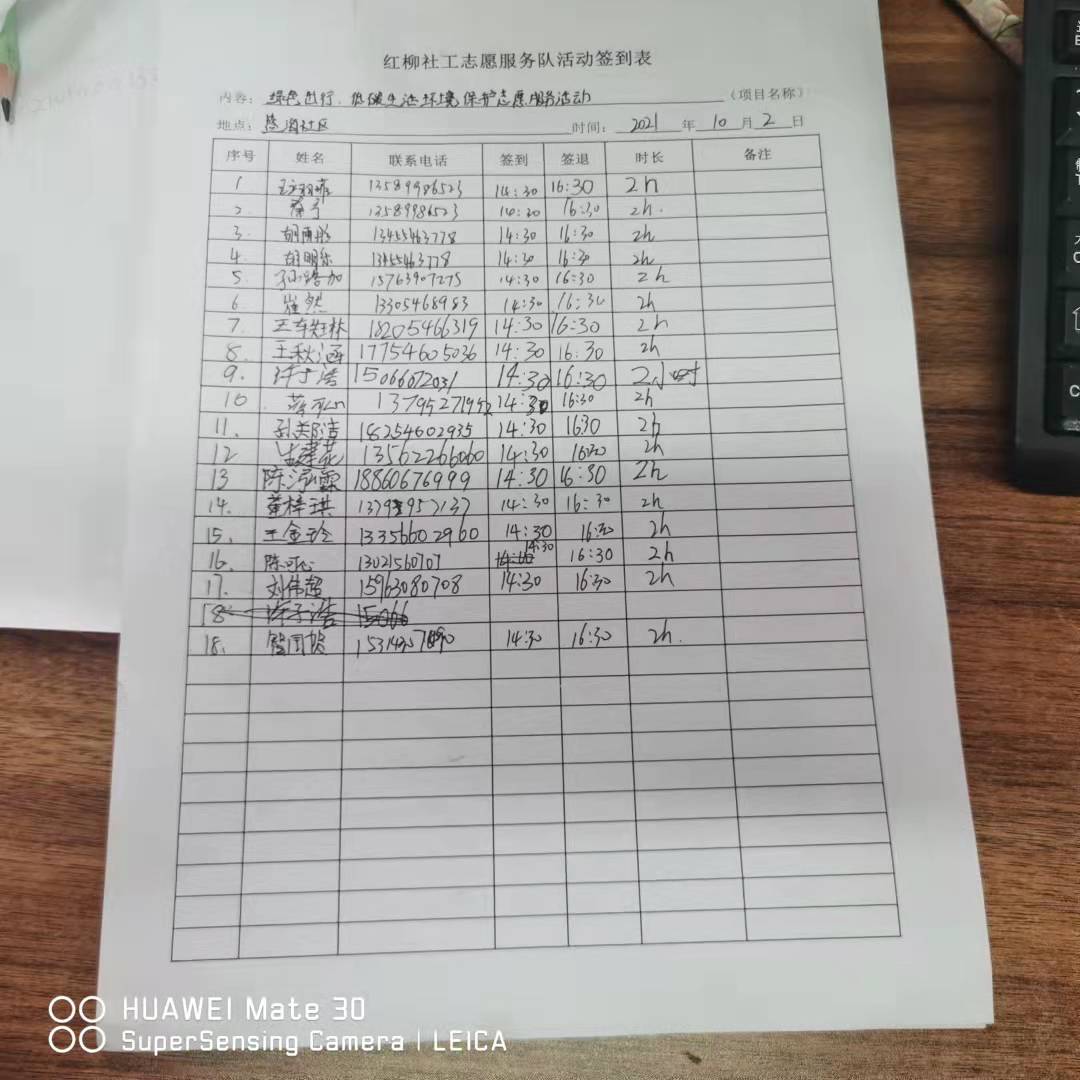 红柳社工志愿服务队活动签到表
内容: 绿色出行、低碳生活环境保护志愿服务活动 (项目名称)
地点: 社区 时间: 2021 年 10 月 2 日
序号 姓名 联系电话 签到 签退 时长 备注
1 13589986523 14:30 16:30 2h
2 13589986523 14:30 16:30 2h.
3. 13455463778 14:30 16:30 2h
4. 胡明乐 13455463778 14:30 16:30 2h
5 15763907275 14:30 16:30 2h
6. 崔然 13305468983 14:30 16:30 2h
7. 18205466319 14:30 16:30 2h
8. 王秋涵 17754605036 14:30 16:30 2h
9. 15066672031 14:30 16:30 2小时
10 14:30 16:30 2h
11. 18254602935 14:30 1630 2h
12 13562266060 14:30 16:30 2h
13 陈泓霖 18860676999 14:30 16:30 2h
14. 黄梓琪 14:30 16:30 2h
15. 王金玲 13356602960 14:30 16:30 2h
16. 陈可心 13021560707 14:30 16:30 2h
17. 刘伟超 15963080708 14:30 16:30 2h
18 15066
18. 14:30 16:30 2h.
HUAWEI Mate 30
SuperSensing Camera | LEICA